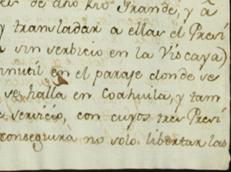 de dho Rio Grande, y à
y transladar a ellas el Presi
sin servicio en la Viscaya)
inutil en el paraje donde se
se halla en Coahuila, y tam
servicio, con cuyos tres Presi
conseguira no solo libertar las